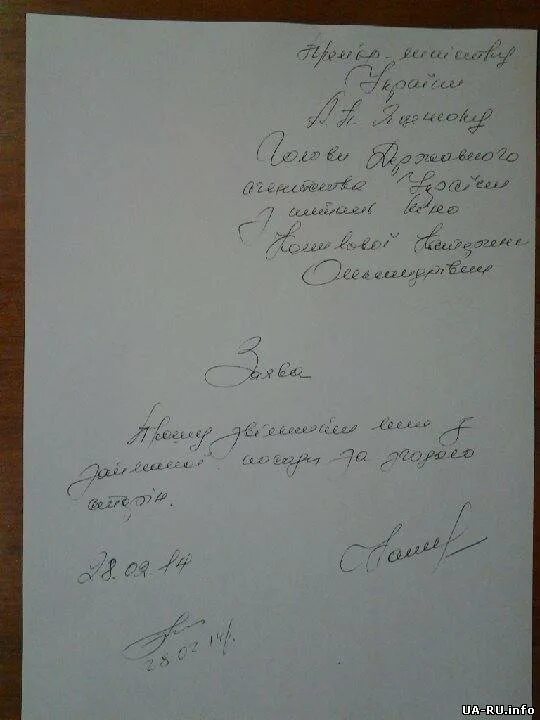 Прем'єр-міністру
України
А.П. Яценюку
Голови Державного
агентства України
з питань кіно
Копилової Катерини
Олександрівни
Заява
Прошу звільнити мене з
займаної посади за згодою
сторін.
28.02.14
28.02.14р.
UA-RU.info